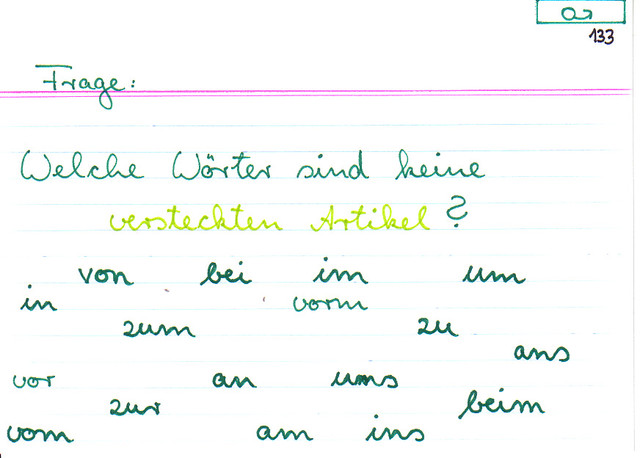 133
Frage:
Welche Wörter sind keine
versteckten Artikel?
von bei im um
in vorm
zum zu
ans
vor an ums
zur beim
vom am ins